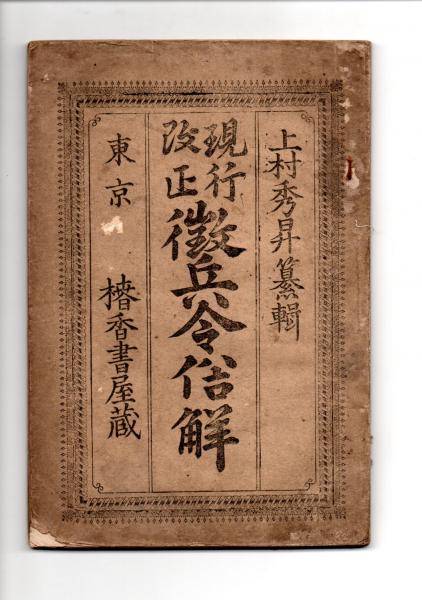 上村秀昇纂輯
現行
改正
徴兵令俗解
東京
香書屋蔵